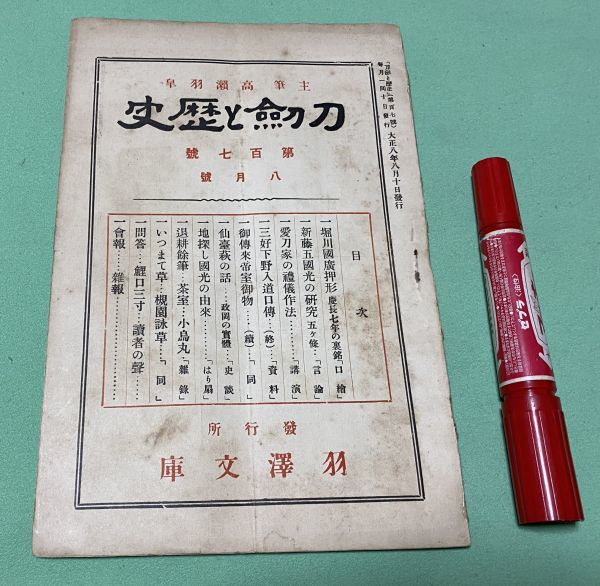 「刀劍と歷史」(第百七號)大正八年八月十日發行
每月一回十日發行
主筆高瀨羽皐
刀劍と歷史
第百七號
八月號
目次
一堀川國廣押形 慶長七年の裏銘「口繪」
一新藤五國光の硏究 五ヶ條…「言論」
一愛刀家の禮儀作法…………「講演」
一三好下野入道口傳…(終)…「資料」
一御傳來帝室御物…(續)…「同」
一仙臺萩の話…政岡の實體…「史談」
一地探し國光の由來…………「はり扇」
一退耕餘筆…茶室…小烏丸「雜錄」
一いつまて草…槻園詠草…「同」
一問答…鯉口三寸…讀者の聲……
一會報…雜報……
發行所
羽澤文庫